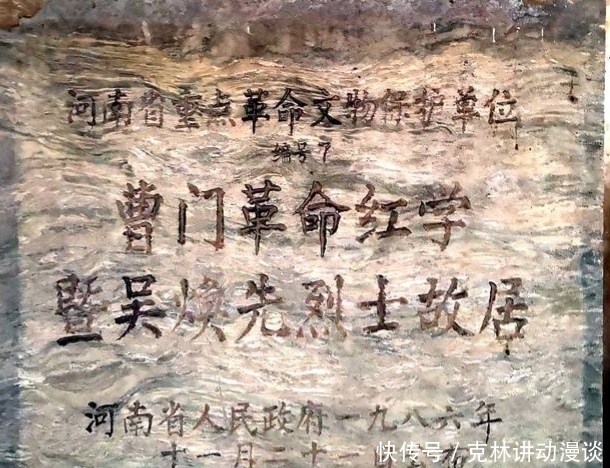 河南省重点革命文物保护单位
编号7
曹门革命红学
暨吴焕先烈士故居
河南省人民政府一九八六年
十一月二十一
快传号/克林讲动漫谈